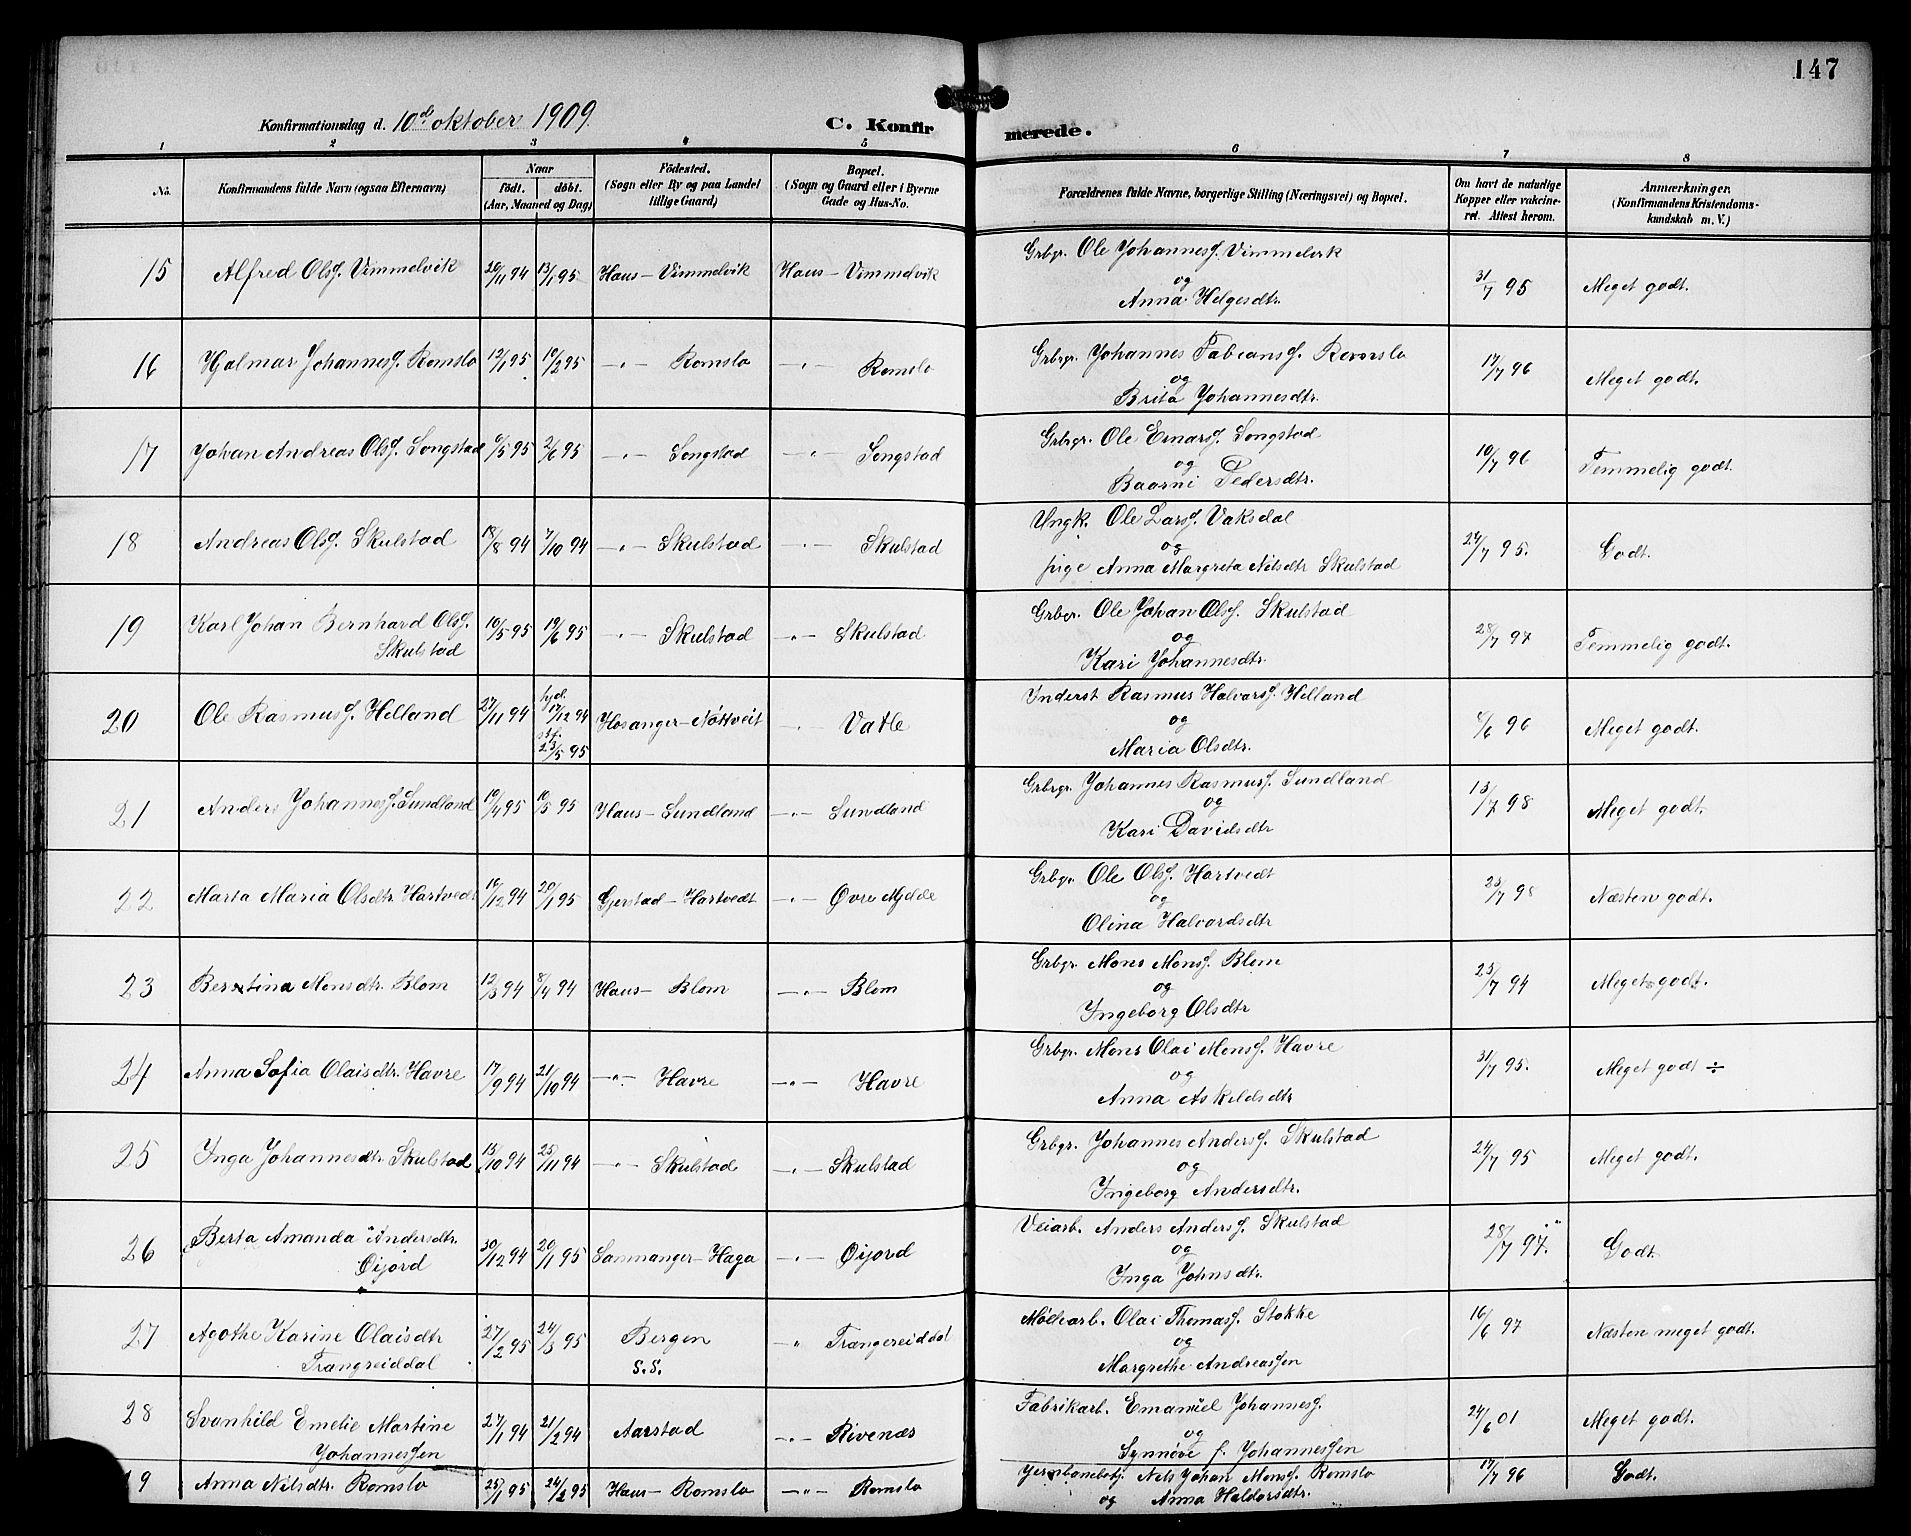 147
Konfirmationsdag d. 10de oktober 1909. C. Konfirmerede.
1 2 3 4 5 6 7 8
No. Konfirmandens fulde Navn (ogsaa Efternavn) Naar födt. döbt. (Aar, Maaned og Dag) Födested. (Sogn eller By og paa Landet tillige Gaard) Bopæl. (Sogn og Gaard eller i Byerne Gade og Hus-No. Forældrenes fulde Navne, borgerlige Stilling (Næringsvei) og Bopæl. Om havt de naturlige Kopper eller vakcineret. Attest herom. Anmærkninger. (Konfirmandens Kristendomskundskab m. V.)
15 Alfred Olsf. Vimmelvik 20/11 94 13/1 95 Haus – Vimmelvik Haus – Vimmelvik Grbgr. Ole Johannesf. Vimmelvik 31/7 95 Meget godt.
og
Anna Helgesdtr.
16 Hjalmar Johannesf. Romslo 12/1 95 10/2 95 –"– Romslo –"– Romslo Grbgr. Johannes Fabiansf. Romslo 17/7 96 Meget godt.
og
Brita Johannesdtr.
17 Johan Andreas Olsf. Songstad 6/5 95 2/6 95 –"– Songstad –"– Songstad Grbgr. Ole Einarsf. Songstad 10/7 96 Temmelig godt.
og
Baarni Pedersdtr.
18 Andreas Olsf. Skulstad 18/8 94 7/10 94 –"– Skulstad –"– Skulstad Ungk. Ole Larsf. Vaksdal 24/7 95. Godt.
og
pige Anna Margreta Nilsdtr Skulstad
19 Karl Johan Bernhard Olsf. 10/5 95 19/6 95 –"– Skulstad –"– Skulstad Grbgr. Ole Johan Olsf. Skulstad 28/7 97 Temmelig godt.
Skulstad og
Kari Johannesdtr.
20 Ole Rasmusf. Helland 27/11 94 hjd. 17/12 94 stf. 23/5 95 Hosanger – Nöttveit –"– Vatle Inderst Rasmus Halvarsf. Helland 6/6 96 Meget godt.
og
Maria Olsdtr.
21 Anders Johannesf. Sundland 19/4 95 10/5 95 Haus – Sundland –"– Sundland Grbrgr. Johannes Rasmusf. Sundland 13/7 98 Meget godt.
og
Kari Davidsdtr
22 Marta Maria Olsdtr. Hartvedt 16/12 94 20/1 95 Gjerstad – Hartvedt –"– Øvre Mjelde Grbgr. Ole Olsf. Hartvedt 23/7 98 Næsten godt.
og
Olina Halvordsdtr
23 Berntina Monsdtr. Blom 12/3 94 8/4 94 Haus – Blom –"– Blom Grbgr. Mons Monsf. Blom 25/7 94 Meget godt.
og
Ingeborg Olsdtr
24 Anna Sofia Olaisdtr. Havre 17/9 94 21/10 94 –"– Havre –"– Havre Grbgr. Mons Olai Monsf. Havre 31/7 95. Meget godt ÷
og
Anna Askeldsdtr
25 Inga Johannesdtr. Skulstad 15/10 94 25/11 94 –"– Skulstad –"– Skulstad Grbgr. Johannes Andersf. Skulstad 24/7 95 Meget godt.
og
Ingeborg Andersdtr.
26 Berta Amanda Andersdtr. 30/12 94 20/1 95 Sammanger – Haga –"– Øijord Veiarb. Anders Andersf. Skulstad 28/7 97. Godt.
Øijord og
Inga Johnsdtr.
27 Agothe Karine Olaisdtr 27/2 95 24/3 95 Bergen –" Trangereiddal Mødearb. Olai Thomasf. Stokke 16/6 97 Næsten meget godt.
Trangreiddal S.S. og
Margrethe Andreassen
28 Svanhild Emelie Martine 27/1 94 21/2 94 Aarstad –"– Rivenæs Fabrikarb. Emanuel Johannesf. 24/6 01 Meget godt.
Johannessen og
Synnøve f. Johannessen
9 Anna Nilsdtr. Romslo 25/1 95 24/2 95 Haus – Romslo –"– Romslo Jernbanebetj. Nels Johan Monsf. Romslo 17/7 96 Godt.
og Anna Haldorsdtr.